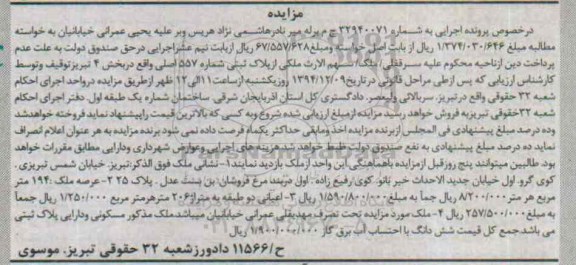 مزایده
درخصوص پرونده اجرایی به شماره ۳۲۹۴۰۰۷۱ ج م م برله میر نادرهاشمی نژاد هریس وبر علیه یحیی عمرانی خیابانیان به خواسته
مطالبه مبلغ ۱/۳۷۴/۰۳۰/۶۴۶ ریال از بابت اصل خواسته ومبلغ ۶۷/۵۵۷/۶۲۸ ریال ازبابت نیم عشراجرایی درحق صندوق دولت به علت عدم
پرداخت دین ازناحیه محکوم علیه سهم الارث ملکی ازپلاک ثبتی شماره ۵۵۷ اصلی واقع دربخش ۴ تبریزتوقیف وتوسط
کارشناس ارزیابی که پس ازطی مراحل قانونی در تاریخ ۱۳۹۴/۱۲/۰۹ روزیکشنبه ازساعت ۱۱الی ۱۲ ظهر ازطریق مزایده درواحد اجرای احکام
شعبه ۳۲ حقوقی واقع در تبریز. سربالائی ولیعصر. دادگستری کل استان آذربایجان شرقی ساختمان شماره یک طبقه اول. دفتر اجرای احکام
شعبه ۳۲حقوقی تبریزبه فروش خواهد رسید مزایده ازمبلغ ارزیابی شده شروع وبه کسی که بالاترین قیمت راپیشنهاد نماید فروخته خواهدشد
وده درصد مبلغ پیشنهادی فی المجلس ازبرنده مزایده اخذ ومابقی حداکثر یکماه فرصت داده نمی شود برنده مزایده به هر عنوان اعلام انصراف
نماید ده درصد مبلغ پیشنهادی به نفع صندوق دولت ضبط خواهد شد هزینه های اجرایی وعوارض شهرداری ودارایی مطابق مقررات خواهد
بود. طالبین میتوانند پنج روزقبل ازمزایده باهماهنگی این واحد ازملک بازدید نمایند ۱- نشانی ملک فوق الذکر:تبریز. خیابان شمس تبریزی.
کوی گرو. اول خیابان جدید الاحداث خبر بانو. کوی رفیع زاده. اول دربند مرغ فروشان. بن بست عدل . پلاک ۲۵ ۲- عرصه ملک :۱۹۴ متر
مربع هر متر ۸/۲۰۰/۰۰۰ ریال جمعا به مبلغ ۱/۵۹۰/۸۰۰/۰۰۰ ریال ۳- اعیانی دو طبقه به متراژ۲۰۶ مترهرمتر مربع ۱/۲۵۰/۰۰۰ ریال جمعاً
به مبلغ ۲۵۷/۵۰۰/۰۰۰ ریال ۴- ملک مورد مزایده تحت تصرف مهدیقلی عمرانی خیابانیان میباشد.ملک مذکور مسکونی ودارایی پلاک ثبتی
می باشد.جمع کل قیمت شش دانگ با احتساب آب برق گاز ۱/۹۰۰/۰۰۰/۰۰۰ ریال
ح/۱۱۵۶۶ دادورزشعبه ۳۲ حقوقی تبریز. موسوی